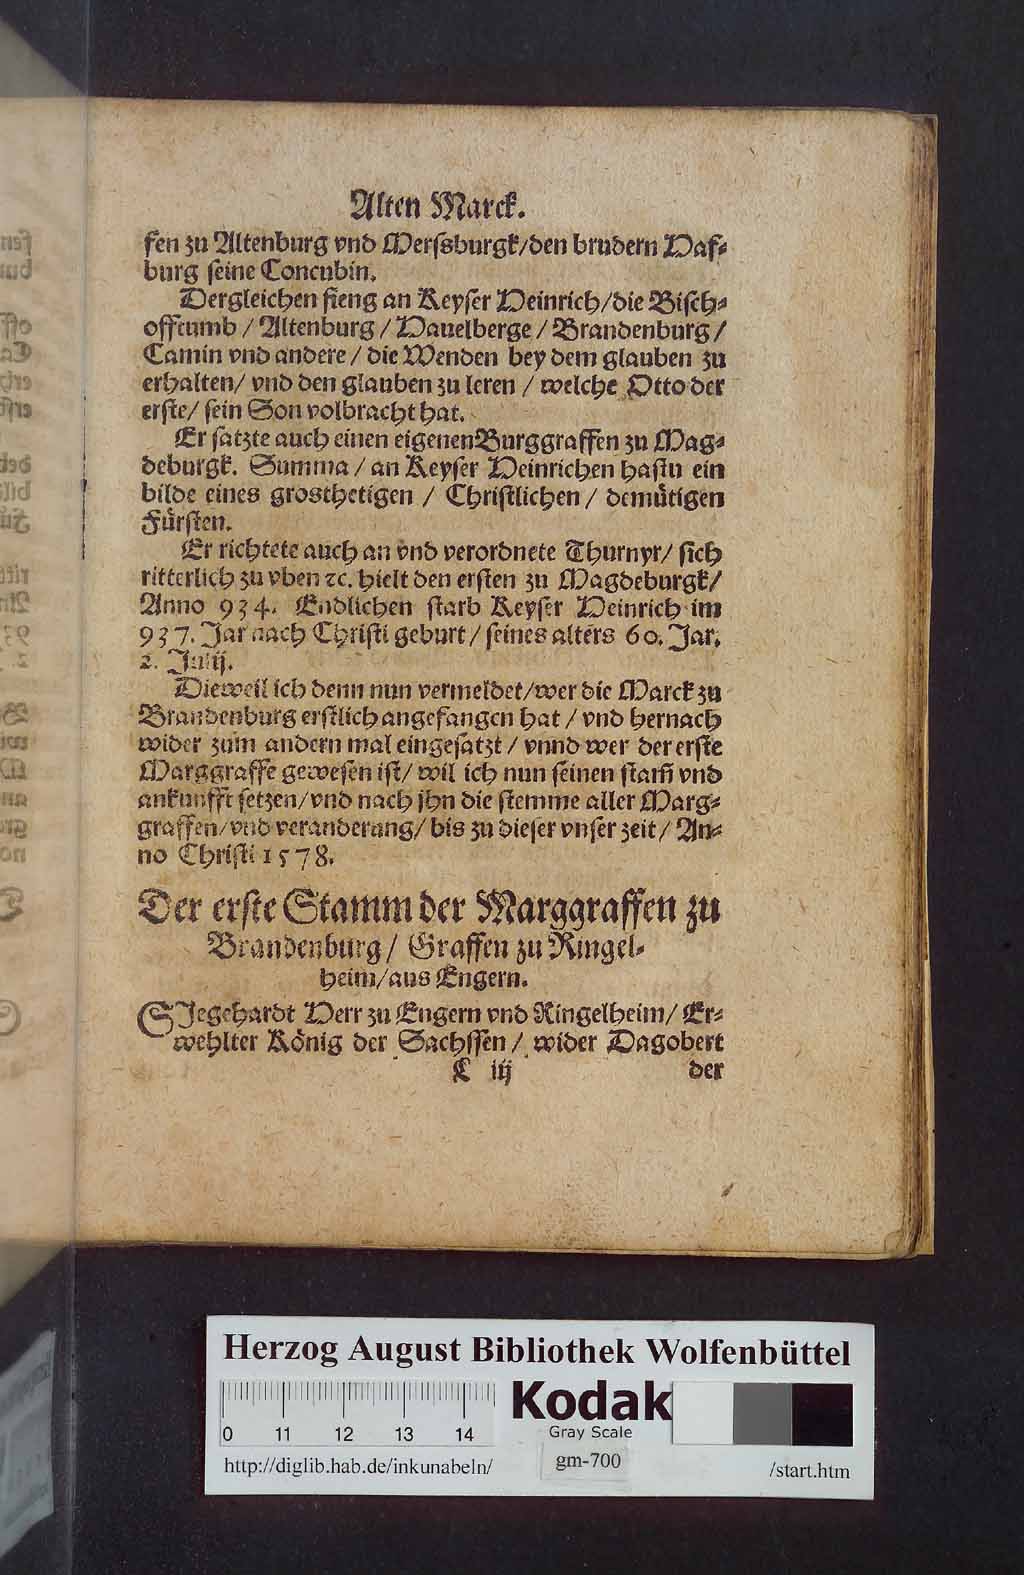 Alten Marck.
fen zu Altenburg vnd Merssburgk/den brudern Has-
burg seine Concubin.
Dergleichen fieng an Keyser Heinrich/die Bisch-
offtumb / Altenburg / Hauelberge / Brandenburg /
Camin vnd andere / die Wenden bey dem glauben zu
erhalten/ vnd den glauben zu leren / welche Otto der
erste/ sein Son volbracht hat.
Er satzte auch einen eigenen Burggraffen zu Mag-
deburgk. Summa / an Keyser Heinrichen hastu ein
bilde eines grosthetigen / Christlichen / demütigen
Fürsten.
Er richtete auch an vnd verordnete Thurnyr/ sich
ritterlich zu vben ꝛc. hielt den ersten zu Magdeburgk/
Anno 934. Endlichen starb Keyser Heinrich im
937. Jar nach Christi geburt / seines alters 60. Jar.
2. Julij.
Dieweil ich denn nun vermeldet/wer die Marck zu
Brandenburg erstlich angefangen hat / vnd hernach
wider zum andern mal eingesatzt / vnnd wer der erste
Marggraffe gewesen ist/ wil ich nun seinen stam̄ vnd
ankunfft setzen/vnd nach jhn die stemme aller Marg-
graffen/vnd veranderung/ bis zu dieser vnser zeit / An-
no Christi 1578.
Der erste Stamm der Marggraffen zu
Brandenburg/ Graffen zu Ringel-
heim/aus Engern.
SJegehardt Herr zu Engern vnd Ringelheim/ Er-
wehlter König der Sachssen / wider Dagobert
C iij der
Herzog August Bibliothek Wolfenbüttel
0 11 12 13 14
Kodak
Gray Scale
http://diglib.hab.de/inkunabeln/
gm-700
/start.htm